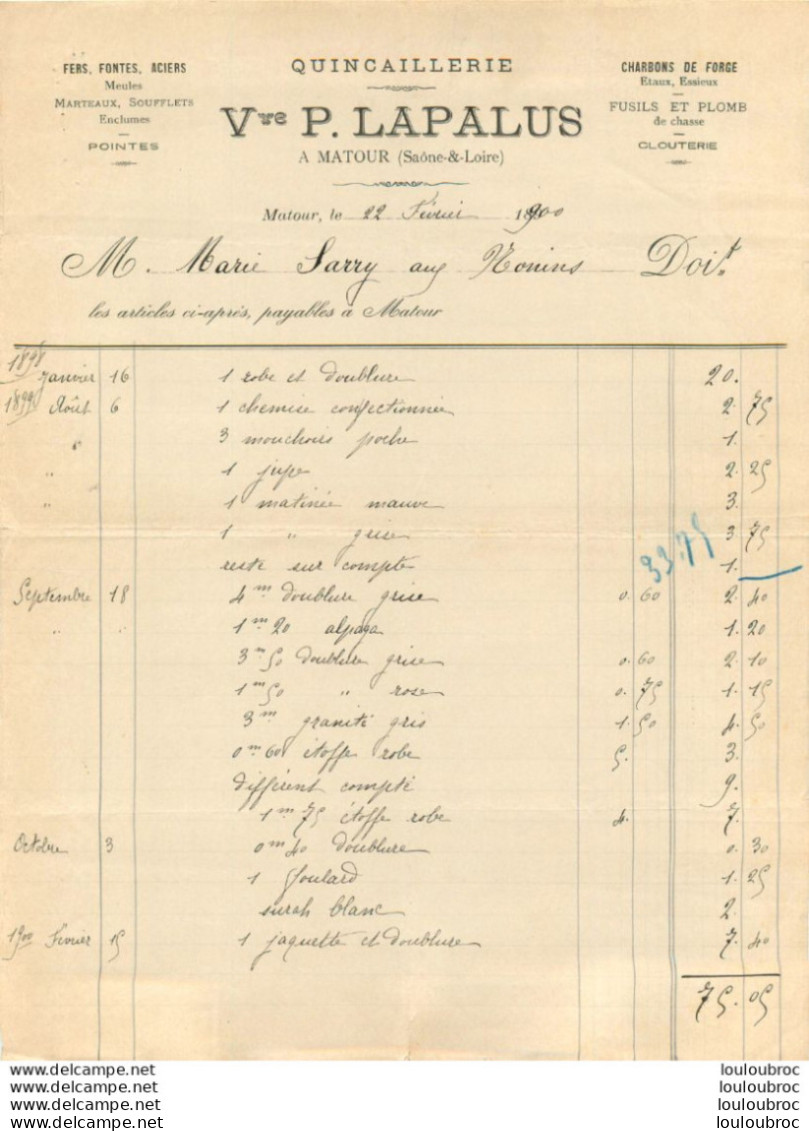 FERS, FONTES, ACIERS
Meules
MARTEAUX, SOUFFLETS
Enclumes
POINTES
QUINCAILLERIE
Vve P. LAPALUS
A MATOUR (Saône-&-Loire)
CHARBONS DE FORGE
Etaux, Essieux
FUSILS ET PLOMB
de chasse
CLOUTERIE
Matour, le 22 Février 1900
M. Marie Sarry aux Doit
les articles ci-après, payables à Matour
1898
Janvier 16 1 robe et doublure 20.
1899 Août 6 1 chemise confectionnée 2. 75
" 3 mouchoirs poche 1.
" 1 jupe 2. 25
" 1 matinée mauve 3.
1 " grise 3 75
reste sur compte 33.75 1.
Septembre 18 4m doublure grise 0. 60 2. 40
" " 1m20 alpaga 1. 20
3m50 doublure grise 0.60 2. 10
1m50 " rose 0. 75 1. 15
3m granité gris 1. 50 4. 50
0m60 étoffe robe 5. 3.
différent compte 9.
1m75 étoffe robe 4. 7.
Octobre 3 0m40 doublure 0. 30
1 foulard 1. 25
surah blanc 2.
1900 Février 15 1 jaquette et doublure 7. 40
75. 05
www.delcampe.net louloubroc
www.delcampe.net louloubroc
www.delcampe.net louloubroc
www.delcampe.net louloubroc